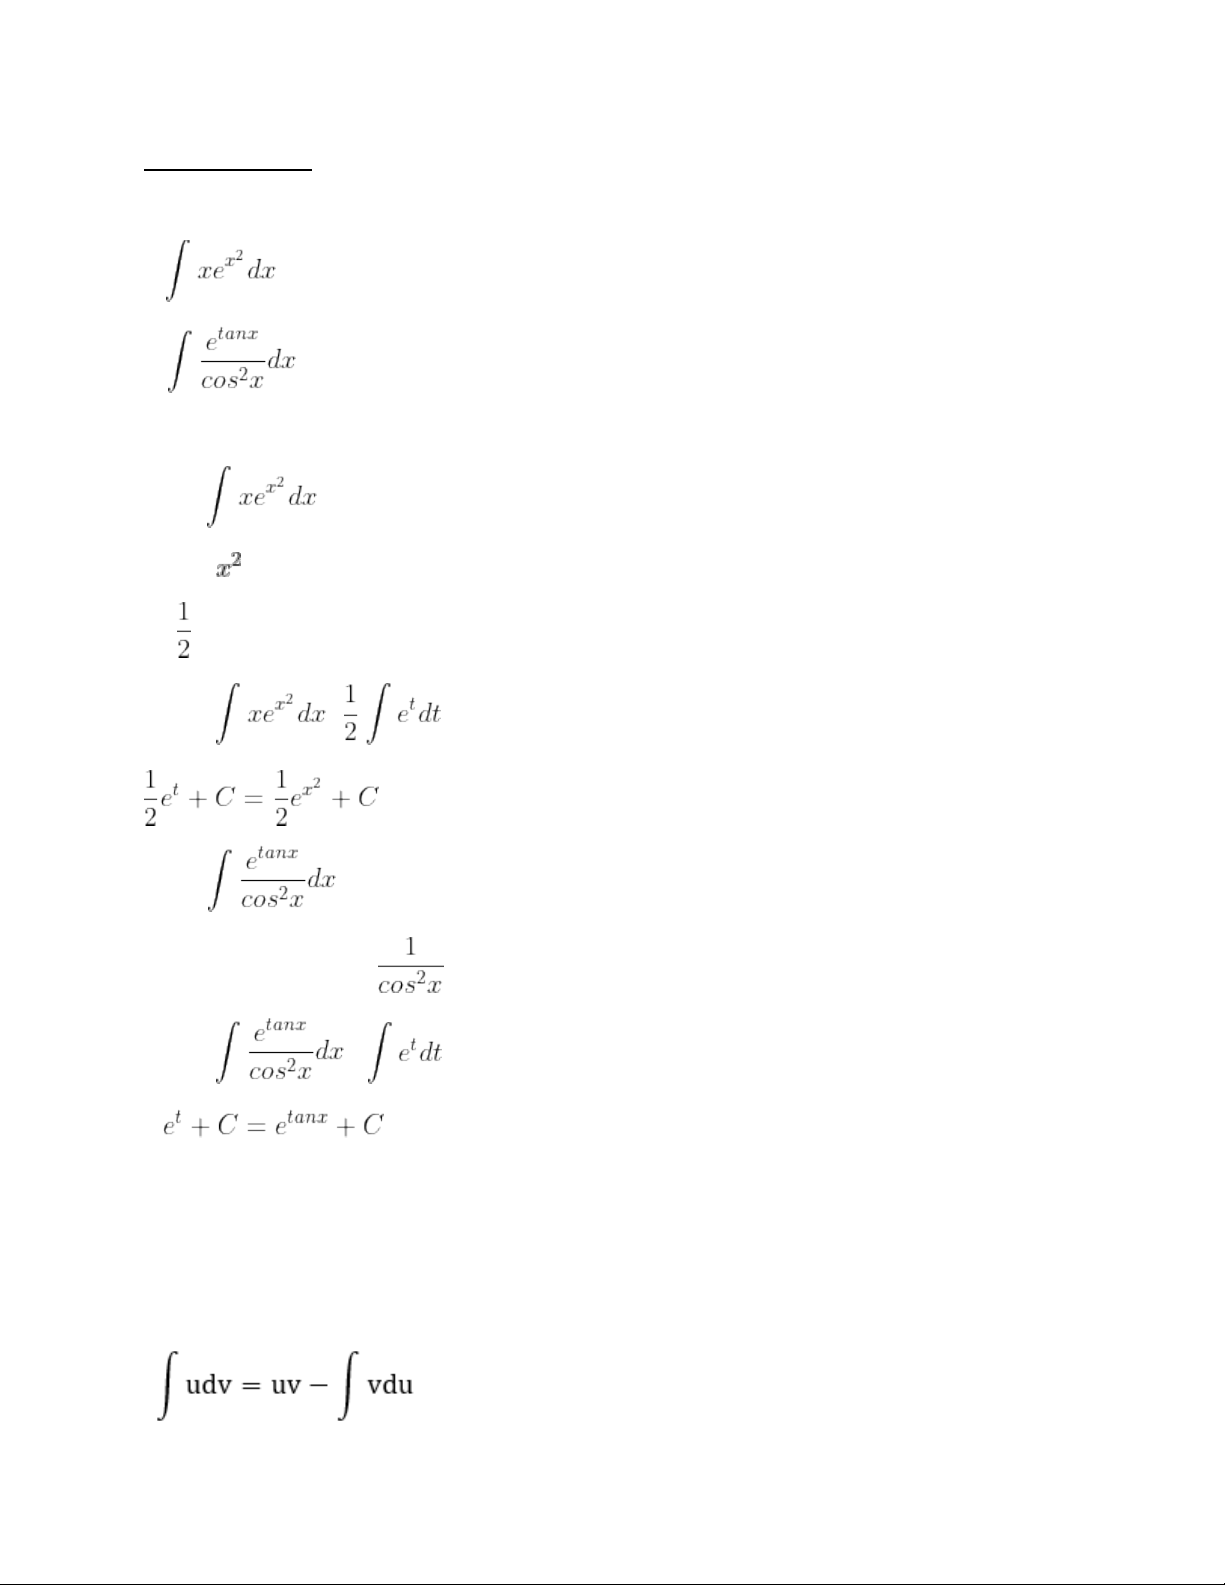 ∫ xe^{x^2} dx
∫ \frac{e^{tanx}}{cos^2x} dx
∫ xe^{x^2} dx
x^2
\frac{1}{2}
∫ xe^{x^2} dx \frac{1}{2} ∫ e^t dt
\frac{1}{2} e^t + C = \frac{1}{2} e^{x^2} + C
∫ \frac{e^{tanx}}{cos^2x} dx
\frac{1}{cos^2x}
∫ \frac{e^{tanx}}{cos^2x} dx ∫ e^t dt
e^t + C = e^{tanx} + C
∫ udv = uv − ∫ vdu